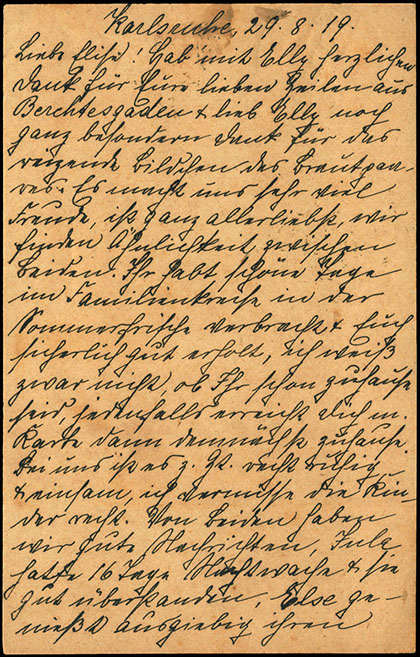 Karlsruhe, 29. 8. 19.
Liebe Elise! Hab mit Elly herzlichen
Dank für Eure lieben Zeilen aus
Berchtesgaden & lieb Elly noch
ganz besondern Dank für das
reizende Bildchen des Brautpaa-
res. Es macht uns sehr viel
Freude, ist ganz allerliebst, wir
finden Ähnlichkeit zwischen
beiden. Ihr habt schöne Tage
im Familienkreise in der
Sommerfrische verbracht & Euch
sicherlich gut erholt, ich weiß
zwar nicht, ob Ihr schon zuhause
seid, jedenfalls erreicht Dich m.
Karte dann demnächst zuhause.
Bei uns ist es z. Zt. recht ruhig
& einsam, ich vermisse die Kin-
der recht. Von beiden haben
wir gute Nachrichten,
hatte 16 Tage Nachtwache & sie
gut überstanden, Else ge-
nießt ausgiebig ihren